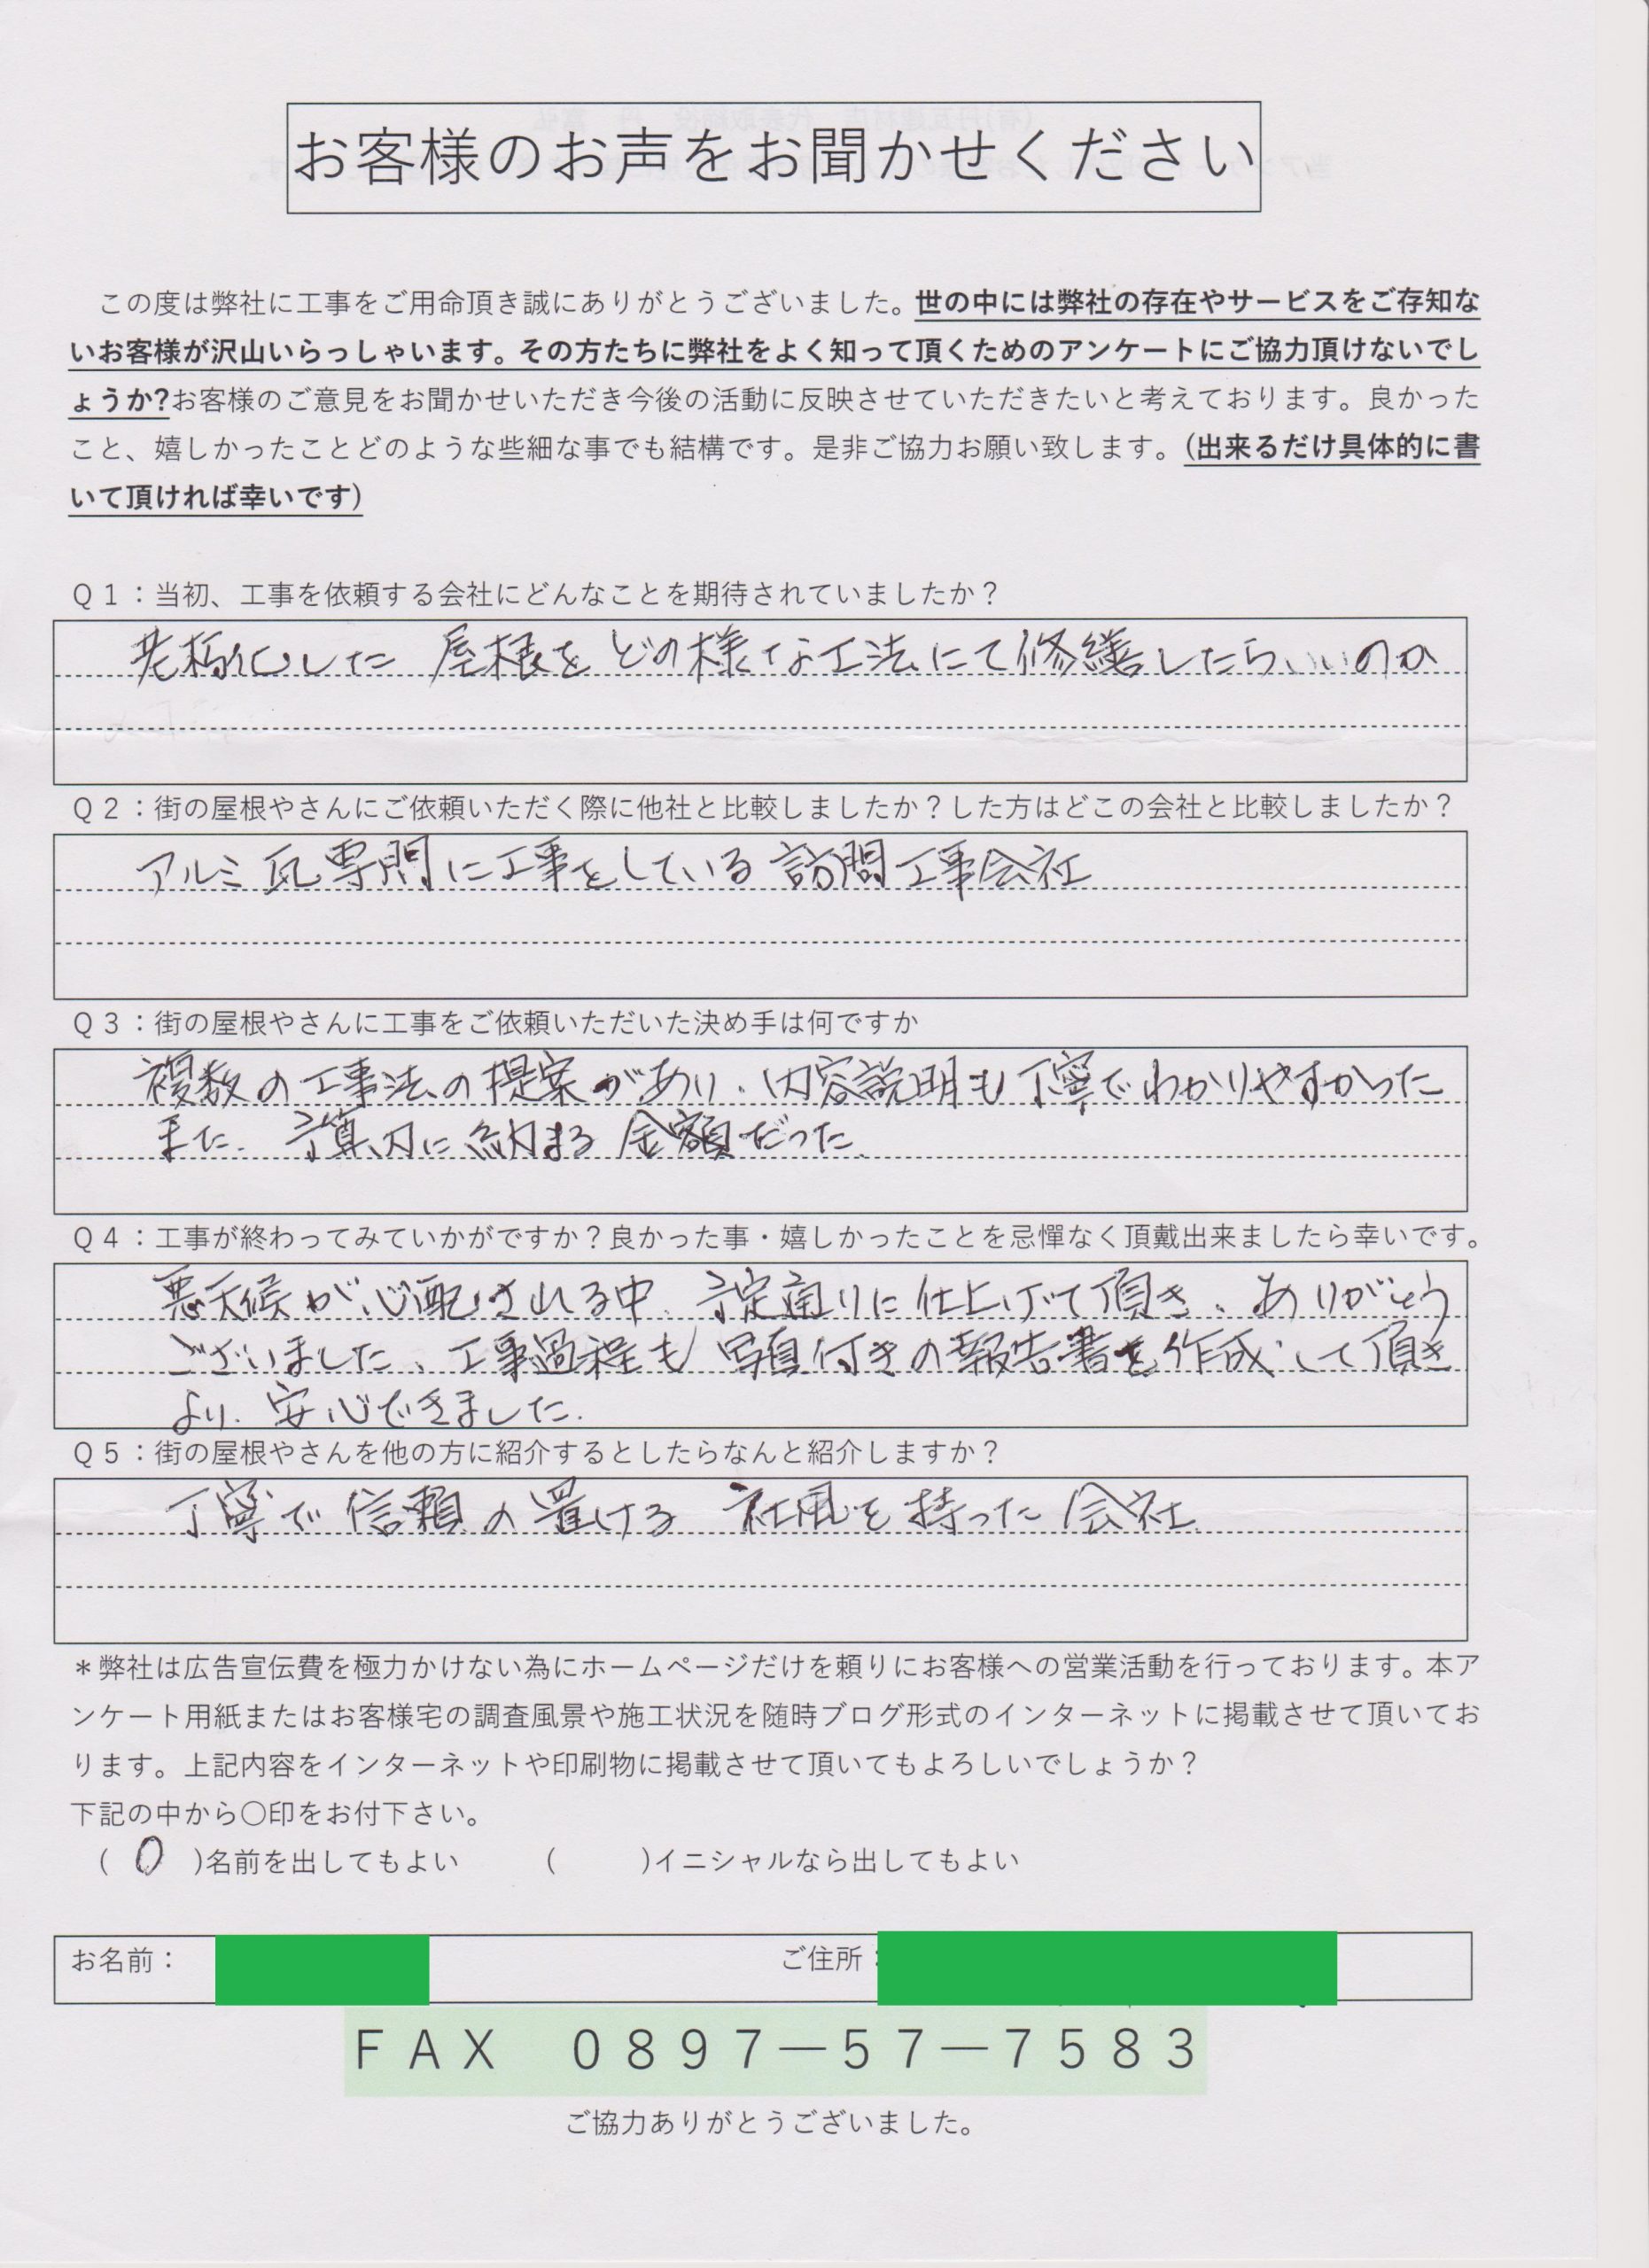 お客様のお声をお聞かせください
この度は弊社に工事をご用命頂き誠にありがとうございました。世の中には弊社の存在やサービスをご存知な
いお客様が沢山いらっしゃいます。その方たちに弊社をよく知って頂くためのアンケートにご協力頂けないでし
ょうか?お客様のご意見をお聞かせいただき今後の活動に反映させていただきたいと考えております。良かった
こと、嬉しかったことどのような些細な事でも結構です。是非ご協力お願い致します。(出来るだけ具体的に書
いて頂ければ幸いです)
Q1：当初、工事を依頼する会社にどんなことを期待されていましたか？
老朽化した 屋根を どの様な工法にて修繕したらいいのか
Q2：街の屋根やさんにご依頼いただく際に他社と比較しましたか？した方はどこの会社と比較しましたか？
アルミ瓦専門に工事をしている 訪問工事会社
Q3：街の屋根やさんに工事をご依頼いただいた決め手は何ですか
複数の工事法の提案があり、内容説明も丁寧でわかりやすかった
また、予算内に納まる金額だった。
Q4：工事が終わってみていかがですか？良かった事・嬉しかったことを忌憚なく頂戴出来ましたら幸いです。
悪天候が心配される中、予定通りに仕上げて頂き、ありがとう
ございました、工事過程も写真付きの報告書を作成して頂き
より、安心できました。
Q5：街の屋根やさんを他の方に紹介するとしたらなんと紹介しますか？
丁寧で信頼の置ける 社風を持った会社
＊弊社は広告宣伝費を極力かけない為にホームページだけを頼りにお客様への営業活動を行っております。本ア
ンケート用紙またはお客様宅の調査風景や施工状況を随時ブログ形式のインターネットに掲載させて頂いてお
ります。上記内容をインターネットや印刷物に掲載させて頂いてもよろしいでしょうか？
下記の中から〇印をお付下さい。
( 0 )名前を出してもよい (  )イニシャルなら出してもよい
お名前： ご住所：
FAX 0897―57―7583
ご協力ありがとうございました。